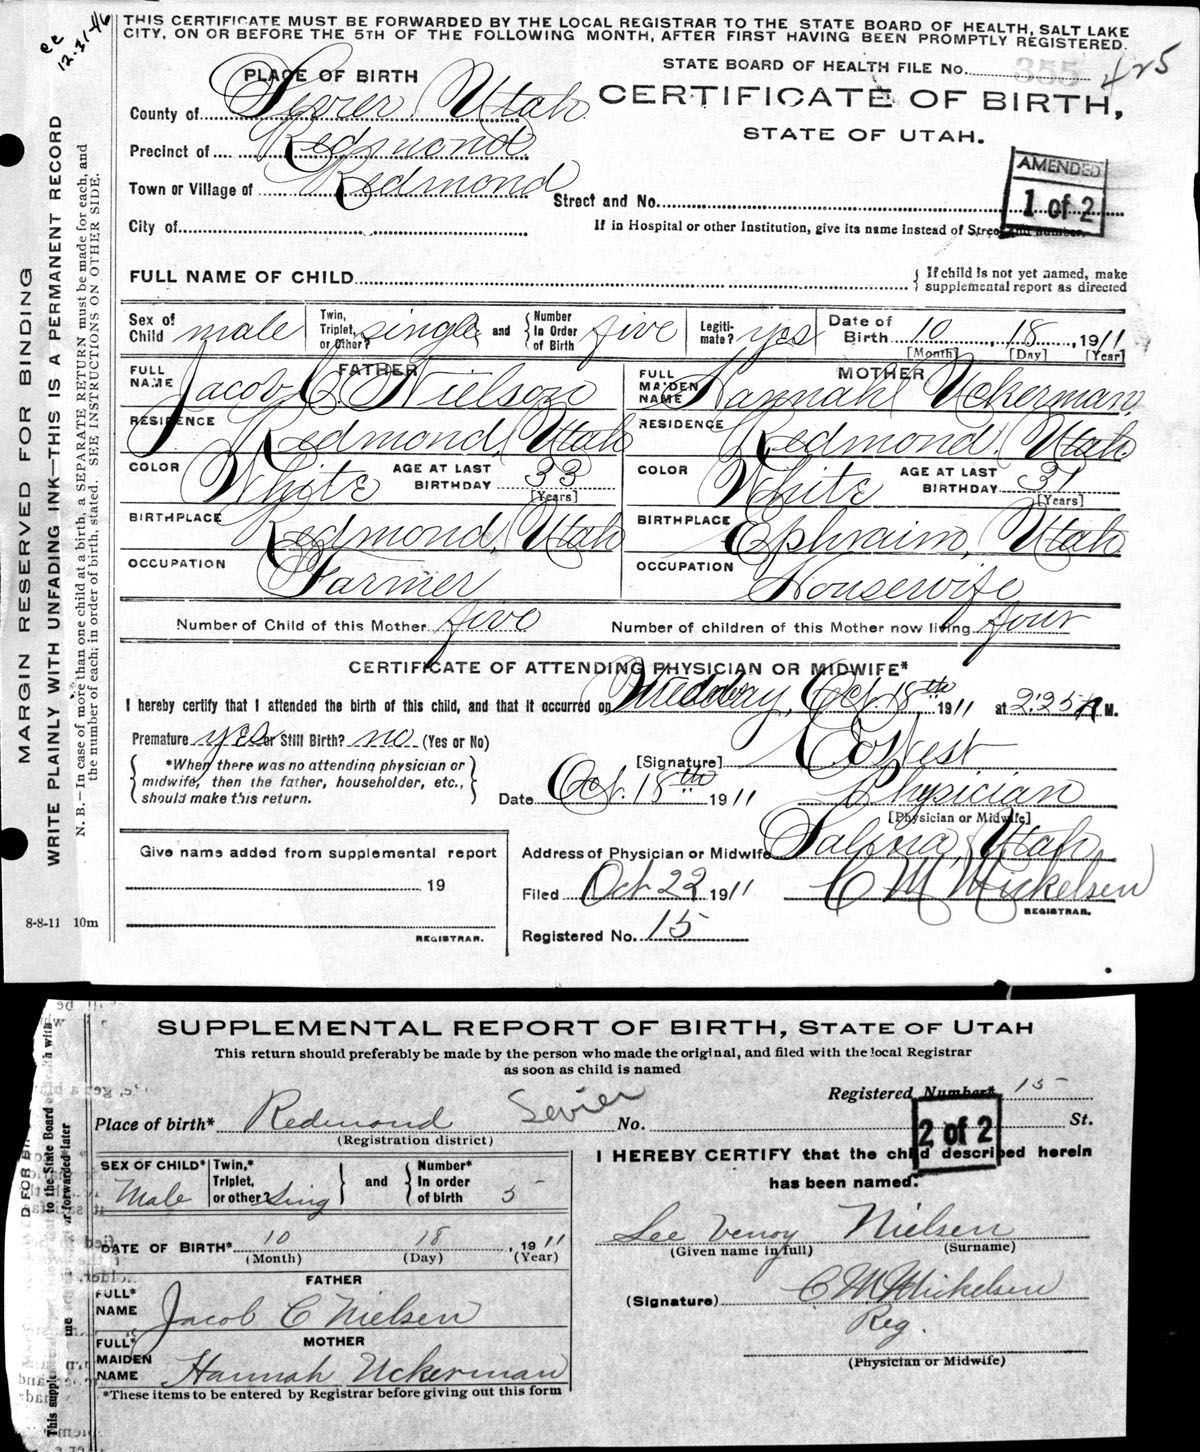 ee
12-31-46
THIS CERTIFICATE MUST BE FORWARDED BY THE LOCAL REGISTRAR TO THE STATE BOARD OF HEALTH, SALT LAKE
CITY, ON OR BEFORE THE 5TH OF THE FOLLOWING MONTH, AFTER FIRST HAVING BEEN PROMPTLY REGISTERED.
STATE BOARD OF HEALTH FILE No. 355 425
PLACE OF BIRTH
CERTIFICATE OF BIRTH,
STATE OF UTAH.
County of Sevier, Utah
Precinct of Redmond
Town or Village of Redmond
Street and No.
AMENDED
1 of 2
City of
If in Hospital or other Institution, give its name instead of Street and number.
FULL NAME OF CHILD
If child is not yet named, make
supplemental report as directed
Sex of Child male
Twin, Triplet, or Other? single and
Number In Order of Birth five
Legiti-mate? yes
Date of Birth 10, 18, 1911
[Month] [Day] [Year]
FATHER
FULL NAME Jacob C Nielson
RESIDENCE Redmond, Utah
COLOR White AGE AT LAST BIRTHDAY 33 [Years]
BIRTHPLACE Redmond, Utah
OCCUPATION Farmer
MOTHER
FULL MAIDEN NAME Hannah Uckerman
RESIDENCE Redmond, Utah
COLOR White AGE AT LAST BIRTHDAY 37 [Years]
BIRTHPLACE Ephraim, Utah
OCCUPATION Housewife
Number of Child of this Mother five
Number of children of this Mother now living four
CERTIFICATE OF ATTENDING PHYSICIAN OR MIDWIFE*
I hereby certify that I attended the birth of this child, and that it occurred on Oct. 18th 1911 at 2:25 A M.
Premature yes or Still Birth? no (Yes or No)
*When there was no attending physician or
midwife, then the father, householder, etc.,
should make this return.
[Signature]
Date Oct. 18th 1911
Physician
[Physician or Midwife]
Address of Physician or Midwife Salina, Utah
Filed Oct 22 1911 C M Mickelsen
REGISTRAR.
Registered No. 15
Give name added from supplemental report
19
REGISTRAR.
8-8-11 10m
MARGIN RESERVED FOR BINDING
WRITE PLAINLY WITH UNFADING INK—THIS IS A PERMANENT RECORD
N. B.—In case of more than one child at a birth, a SEPARATE RETURN must be made for each, and
the number of each; in order of birth, stated. SEE INSTRUCTIONS ON OTHER SIDE.
SUPPLEMENTAL REPORT OF BIRTH, STATE OF UTAH
This return should preferably be made by the person who made the original, and filed with the local Registrar
as soon as child is named
Registered Number* 15
Place of birth* Redmond Sevier No. St.
(Registration district)
2 of 2
SEX OF CHILD* Male
Twin,* Triplet, or other? Sing and
Number* In order of birth 5
DATE OF BIRTH* 10 18, 1911
(Month) (Day) (Year)
FATHER
FULL* NAME Jacob C Nielsen
MOTHER
FULL* MAIDEN NAME Hannah Uckerman
*These items to be entered by Registrar before giving out this form
I HEREBY CERTIFY that the child described herein
has been named:
Lee Venoy Nielsen
(Given name in full) (Surname)
(Signature) C M Mickelsen
Reg.
(Physician or Midwife)